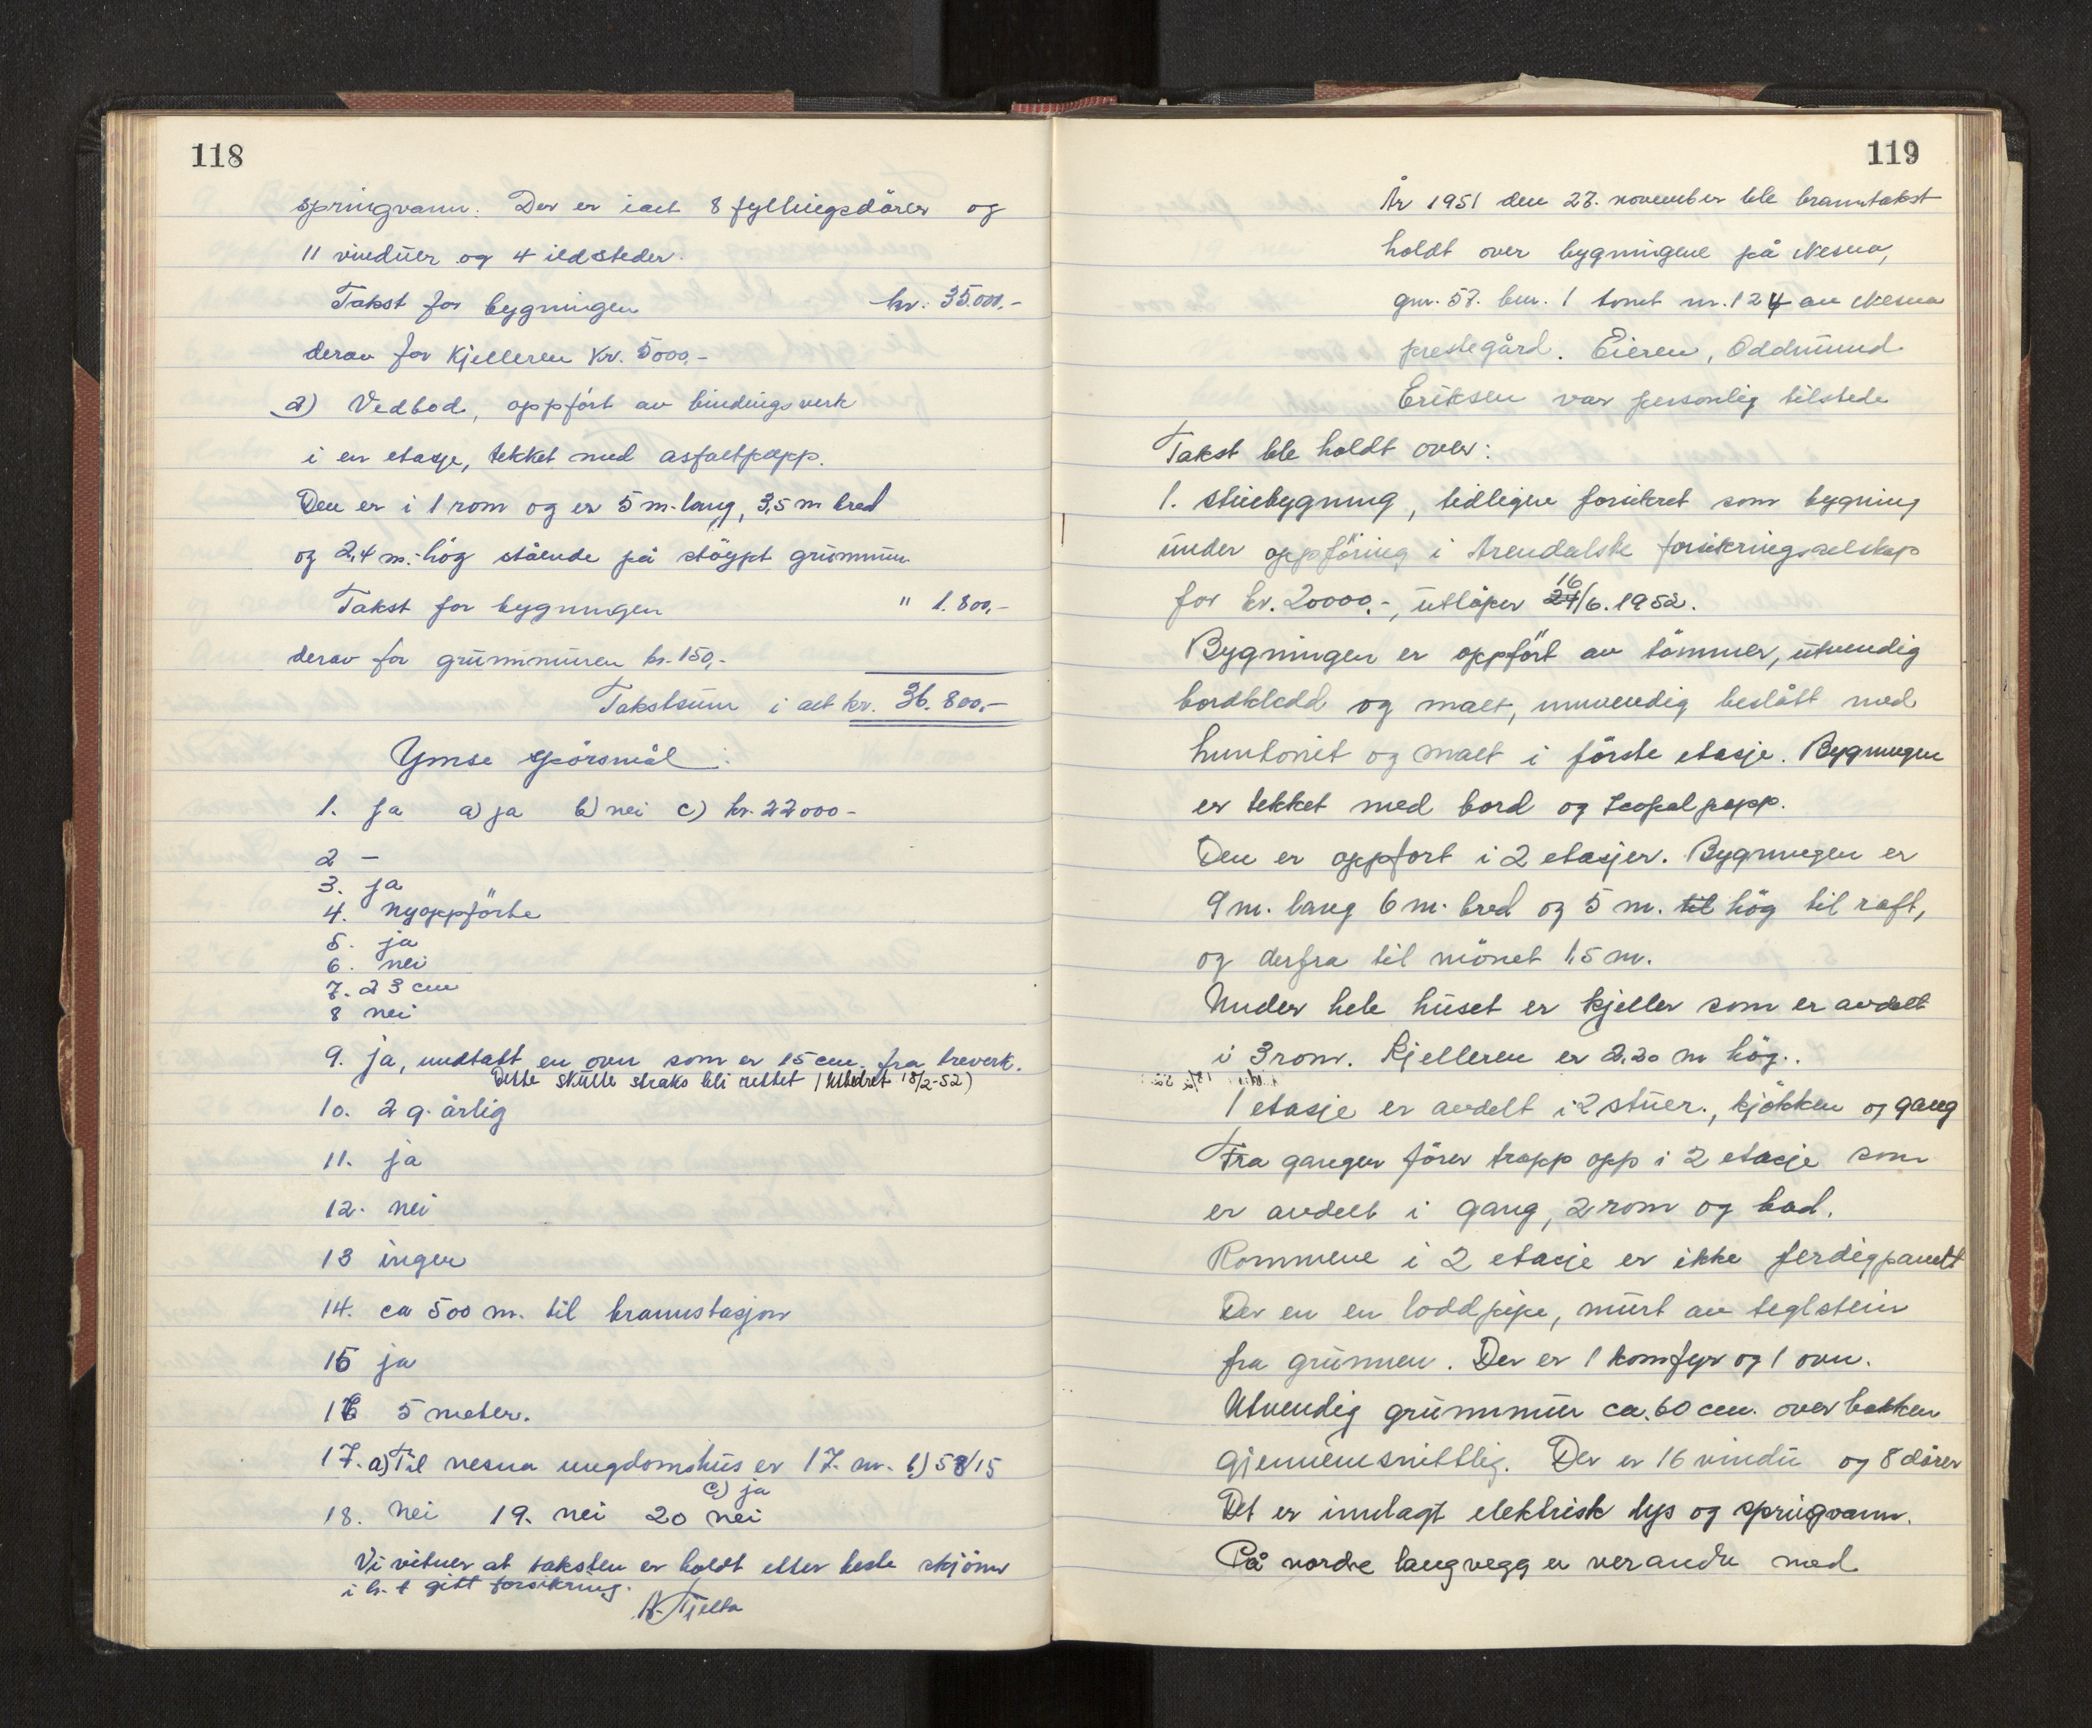 118
springvann. Der er ialt 8 fyllingsdörer og
11 vinduer og 4 ildsteder.
Takst for bygningen kr. 35.000,-
derav for kjelleren kr. 5000,-
2) Vedbod, oppfört av bindingsverk
i en etasje, tekket med asfaltpapp.
Den er i 1 rom og er 5 m. lang, 3,5 m bred
og 2,4 m. hög stående på stöypt grunnmur
Takst for bygningen " 1.800,-
derav for grunnmuren kr. 150,-
Takstsum i alt kr. 36.800,-
Ymse spörsmål:
1. Ja a) ja b) nei c) kr. 22000-
2 -
3. ja
4. nyoppförte
5. ja
6. nei
7. 23 cm
8 nei
9. ja, undtatt en ovn som er 15 cm. fra treverk.
Dette skulle straks bli rettet (Utbedret 18/2-52)
10. 2 g. årlig
11. ja
12. nei
13 ingen
14. ca 500 m. til brannstasjon
15 ja
16 5 meter.
17. a) Til nesna ungdomshus er 17. m. b) 58/15
c) ja
18. nei 19. nei 20 nei
Vi vitner at taksten er holdt etter beste skjönn
i h. t gitt forsikring.
A. Tjelta
119
År 1951 den 27. november ble branntakst
holdt over bygningene på Nesna,
gnr. 57. bnr. 1 tomt nr. 124 av Nesna
prestegård. Eieren, Oddmund
Eriksen var personlig tilstede
Takst ble holdt over:
1. Stuebygning, tidligere forsikret som bygning
under oppföring i Arendalske forsikringsselskap
for kr. 20000.-, utlöper 24 16/6. 1952.
Bygningen er oppfört av tömmer, utvendig
bordkledd og malt, innvendig beslått med
huntonit og malt i förste etasje. Bygningen
er tekket med bord og Icopalpapp.
Den er oppfort i 2 etasjer. Bygningen er
9 m. lang 6 m. bred og 5 m. til hög til raft,
og derfra til mönet 1,5 m.
Under hele huset er kjeller som er avdelt
i 3 rom. Kjelleren er 2,20 m hög..
1 etasje er avdelt i 2 stuer., kjökken og gang
Fra gangen förer trapp opp i 2 etasje som
er avdelt i gang, 2 rom og bad.
Rommene i 2 etasje er ikke ferdigpanelt
Der en en loddpipe, murt av teglstein
fra grunnen. Der er 1 komfyr og 1 ovn.
Utvendig grunnmur ca. 60 cm. over bakken
gjennemsnittlig. Der er 16 vindu og 8 dörer
Det er innlagt elektrisk lys og springvann.
På nordre langvegg er verandre med